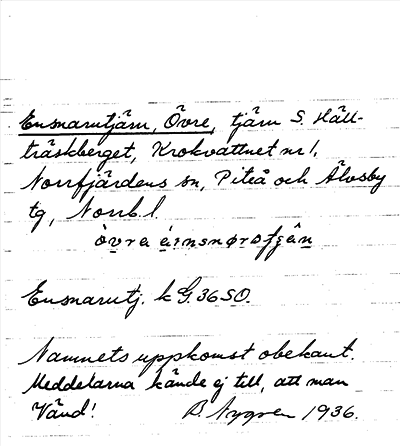 Ensnarutjärn, Övre, tjärn S. Häll-
träskberget, Krokvattnet nr 1,
Norrfjärdens sn, Piteå och Älvsby
tg, Norrb. l.
övrα
Ensnarutj. k G. 36 SO.
Namnets uppkomst obekant.
Meddelarna kände ej till, att man
Vänd! B. Nygren 1936.